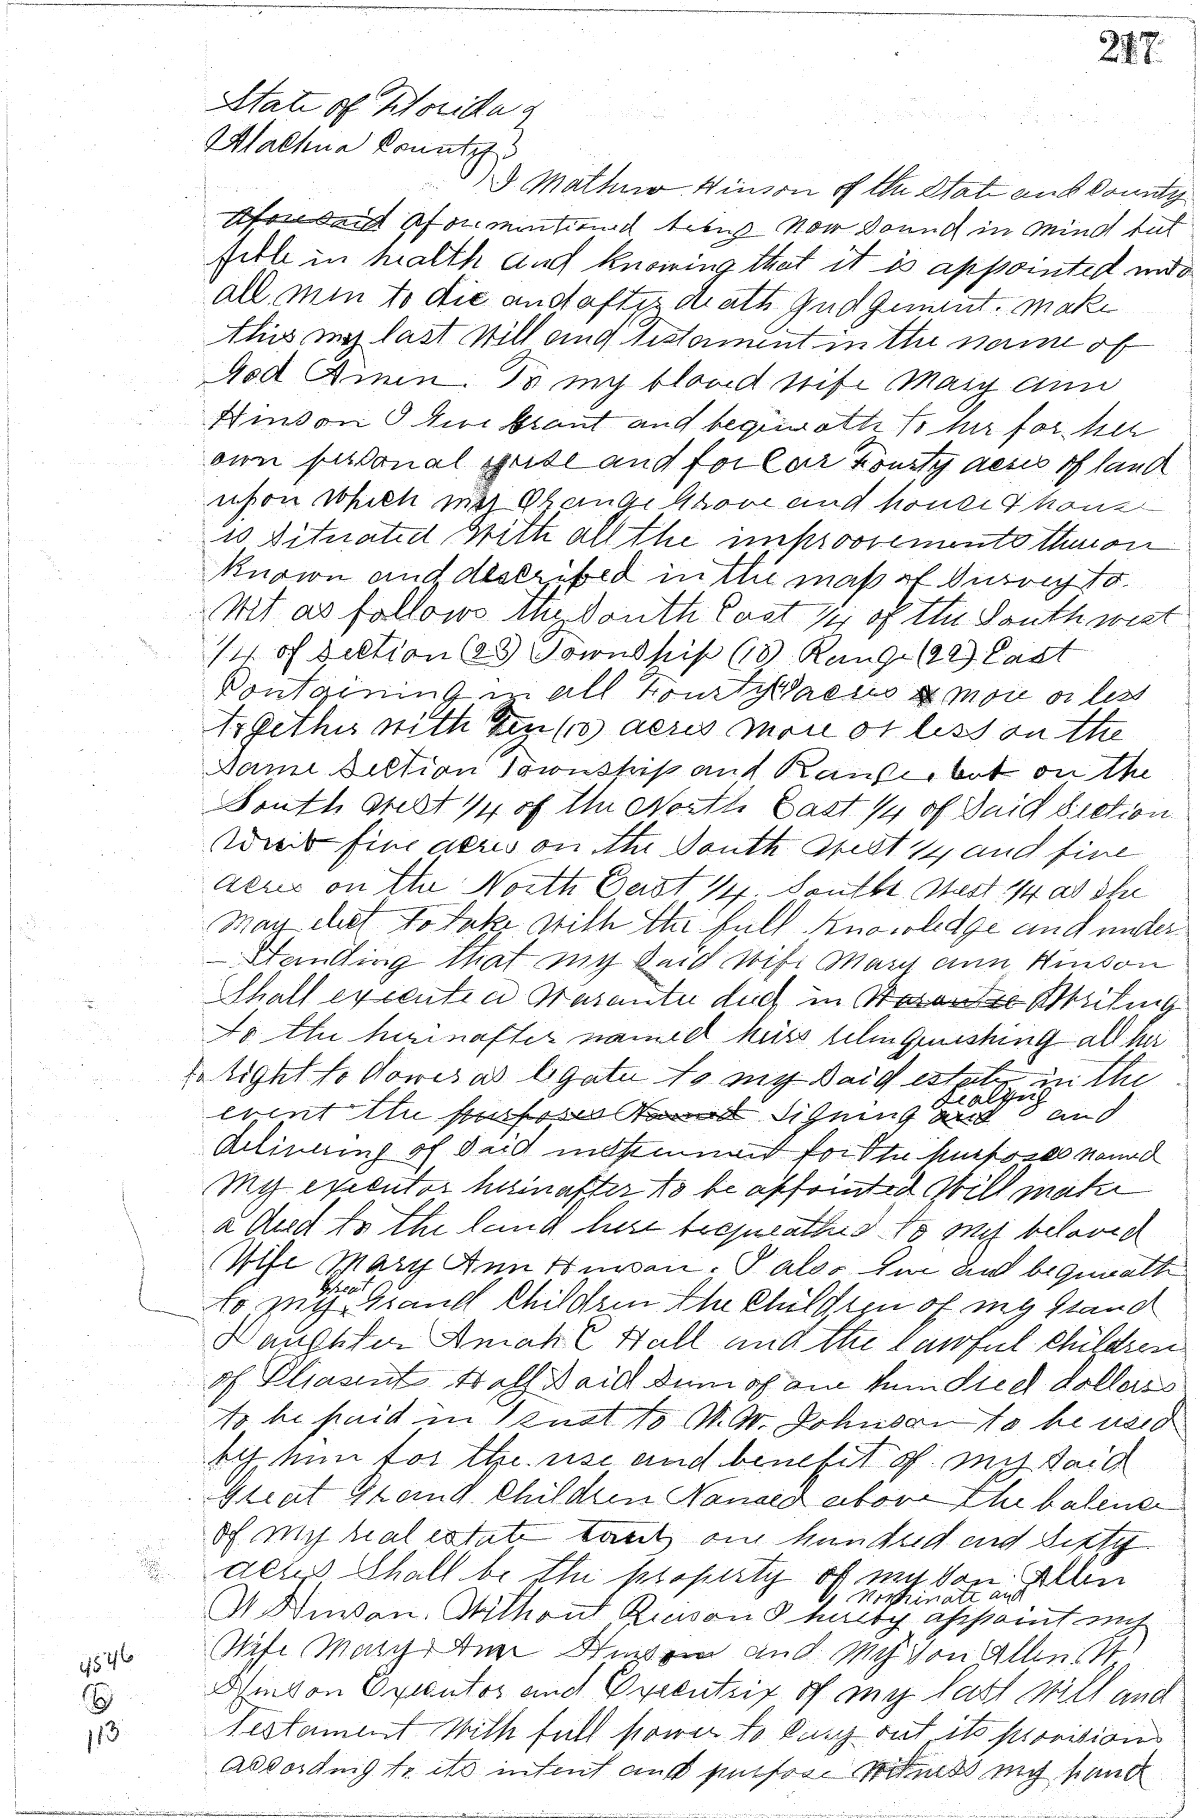 217
State of Florida
Alachua County
I Mathew Hinson of the State and County
aforesaid aforementioned being now Sound in mind but
feble in health and knowing that it is appointed unto
all men to die and after death Judgement. make
this my last Will and Testament in the name of
God Amen. To my bloved wife Mary ann
Hinson I Give Grant and bequeath to her for her
own personal use and for Ever Fourty acres of land
upon which my Orange Grove and house & home
is Situated With all the improovements thereon
Known and described in the map of Survey to.
Wit as follows the South East 1/4 of the South west
1/4 of Section (23) Township (10) Range (22) East
Containing in all Fourty acres more or less
together with Ten (10) acres more or less on the
Same Section Township and Range. but on the
South West 1/4 of the North East 1/4 of Said Section
five acres on the South West 1/4 and five
acres on the North East 1/4. South West 1/4 as She
may elect to take with the full Knowledge and under
-Standing that my Said wife Mary ann Hinson
Shall execute a Warantee deed in Warantee Writing
to the herinafter named heirs relinqueshing all her
to right to Dower as legatee to my Said estate in the
Sealyng
event the purposes Named Signing and and
delivering of Said instrument for the purposes named
My executor herinafter to be appointed Will make
a deed to the land here bequeathed to my beloved
Wife Mary Ann Hinson. I also Give and bequeath
Great
to my Grand Children the Children of my Grand
Daughter Amah C Hall and the lawful Children
of Pleasent Hall Said Sum of one hundred dollars
to be paid in Trust to W. W. Johnson to be used
by him for the use and benefit of my Said
Great Grand Children Named above the balence
of my real estate one hundred and Sixty
acres Shall be the property of my Son Allen
Nominate and
W Hinson. Without Reason I hereby appoint my
Wife Mary Ann Hinson and My Son Allen W
Hinson Executor and Executrix of my last Will and
Testament With full power to Cary out its provisions
according to its intent and purpose Witness my hand
4546
B
113